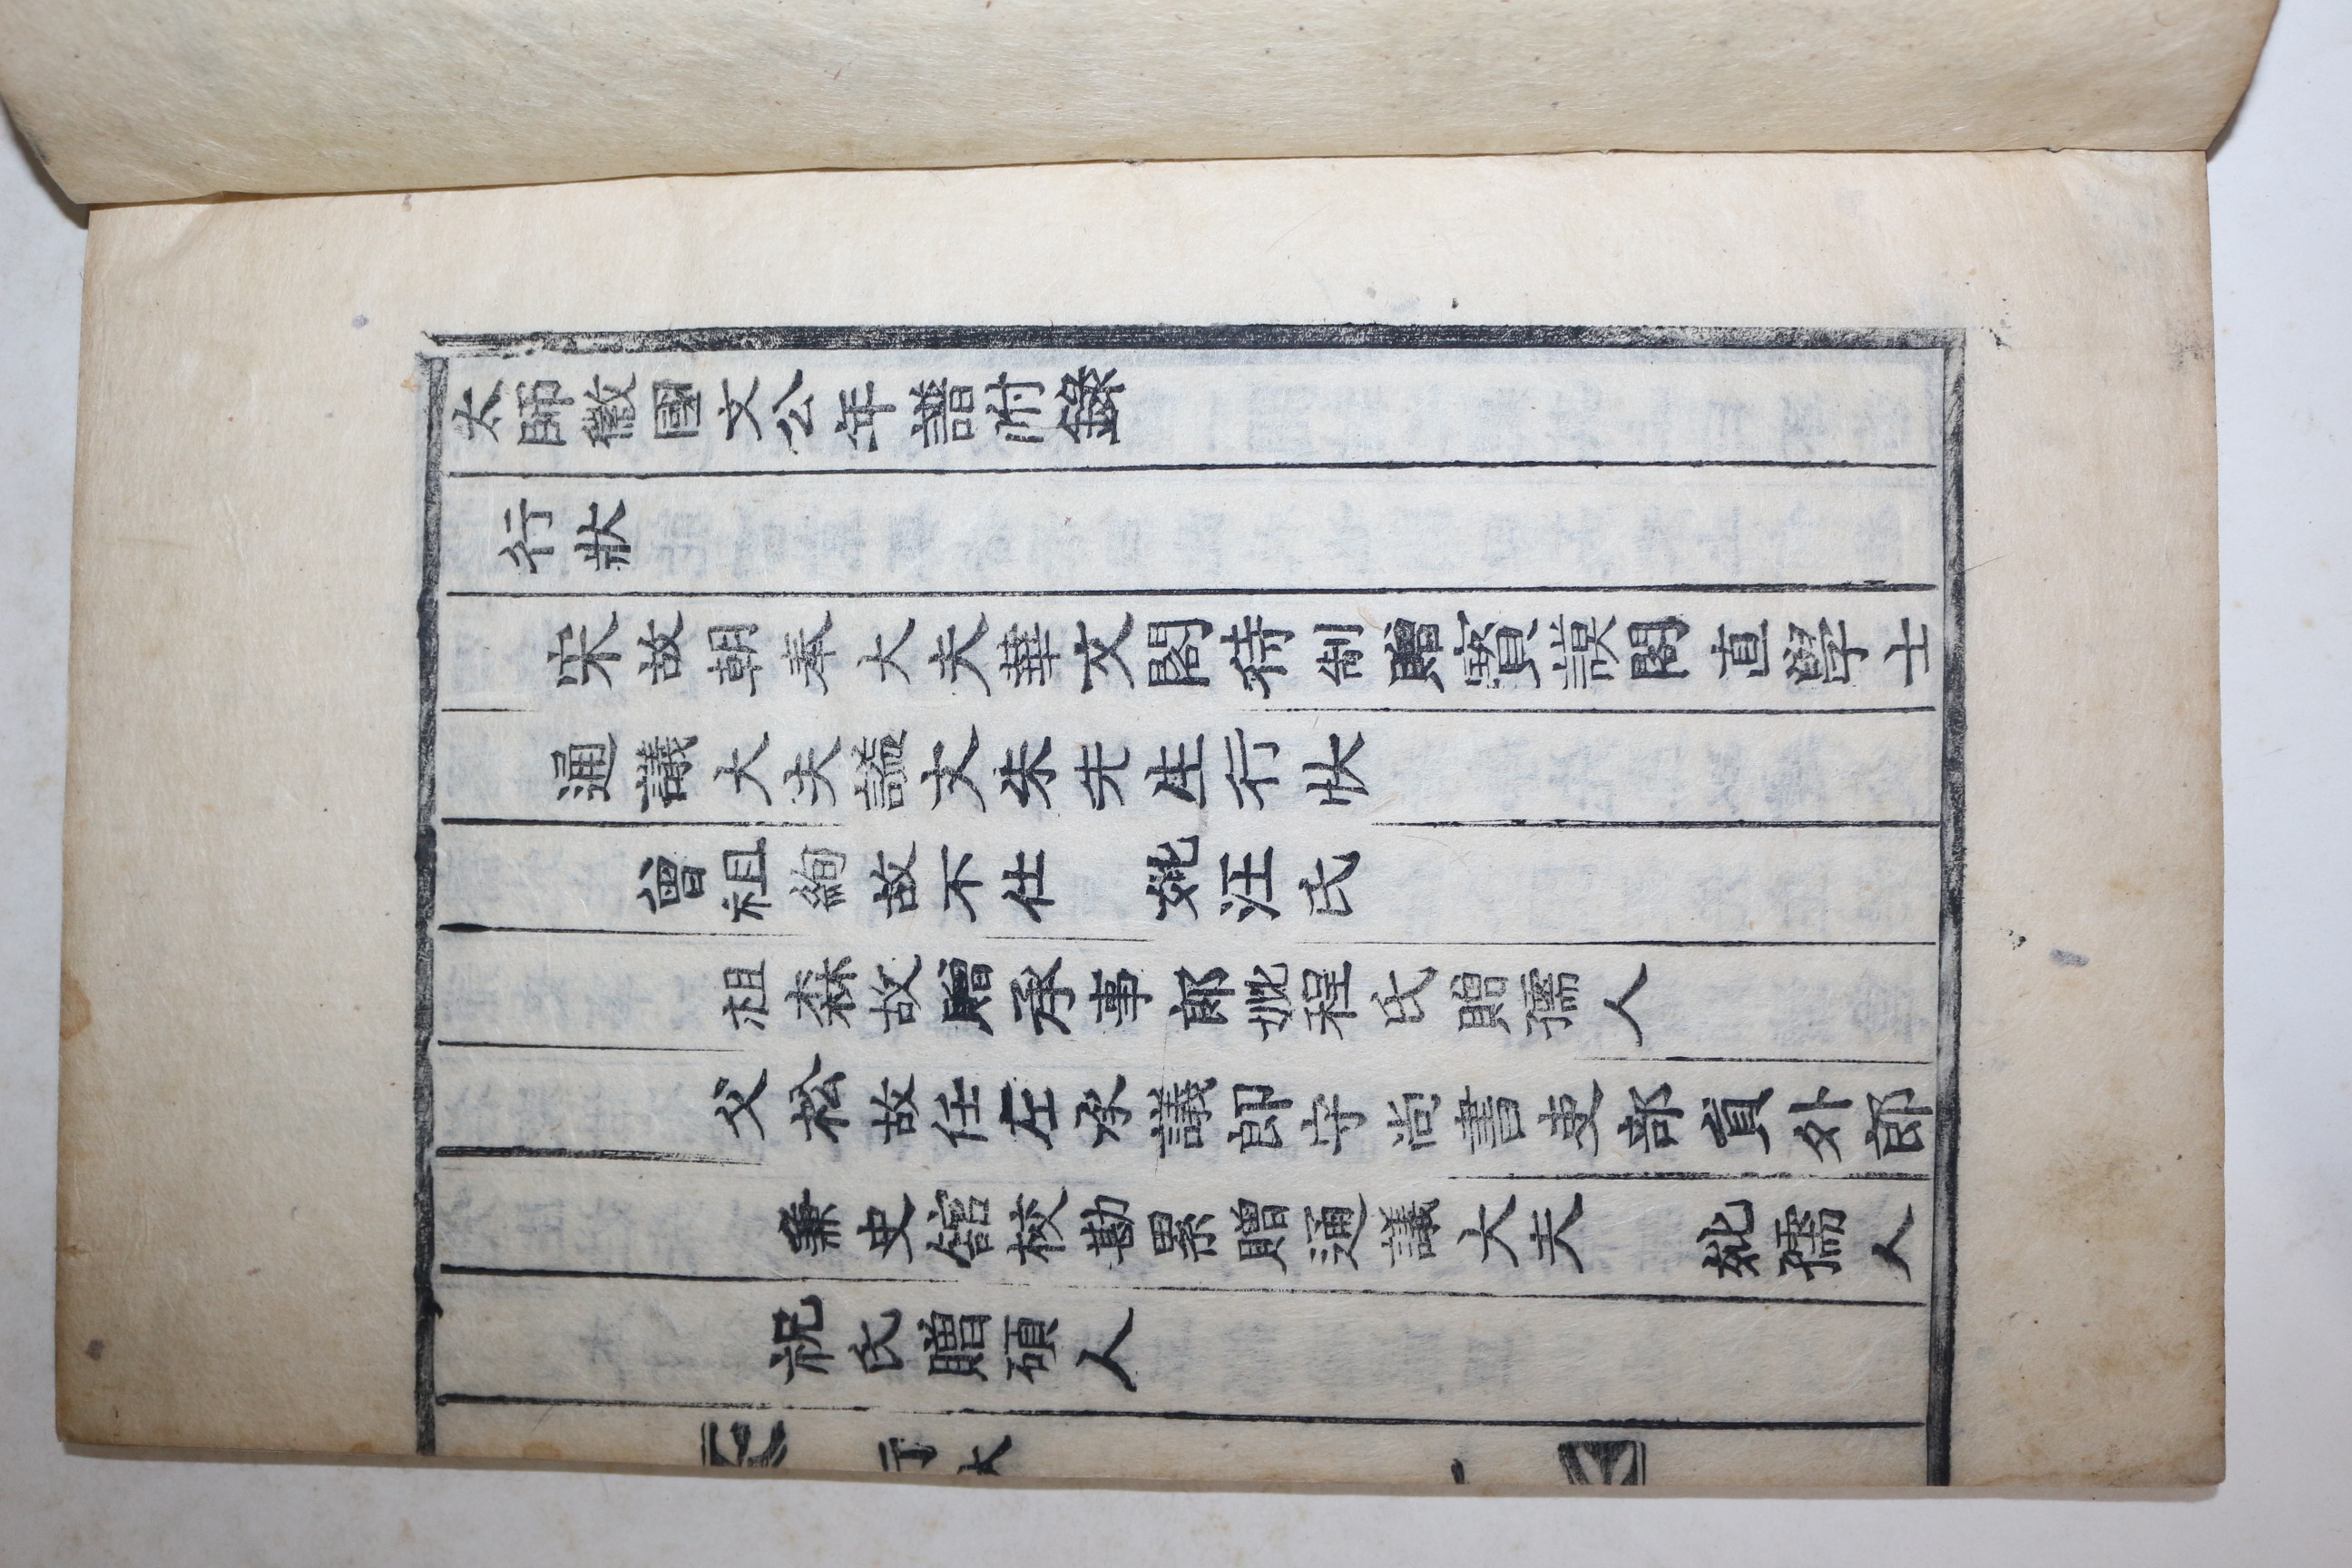 太師徽國文公年譜附錄
行狀
宋故朝奉大夫華文閣待制贈寶謨閣直學士
通議大夫謚文朱先生行狀
曾祖絢故不仕 妣汪氏
祖森故贈承事郎妣程氏贈孺人
父松故任左承議郎守尚書吏部員外郎
兼史館校勘累贈通議大夫 妣孺人
祝氏贈碩人